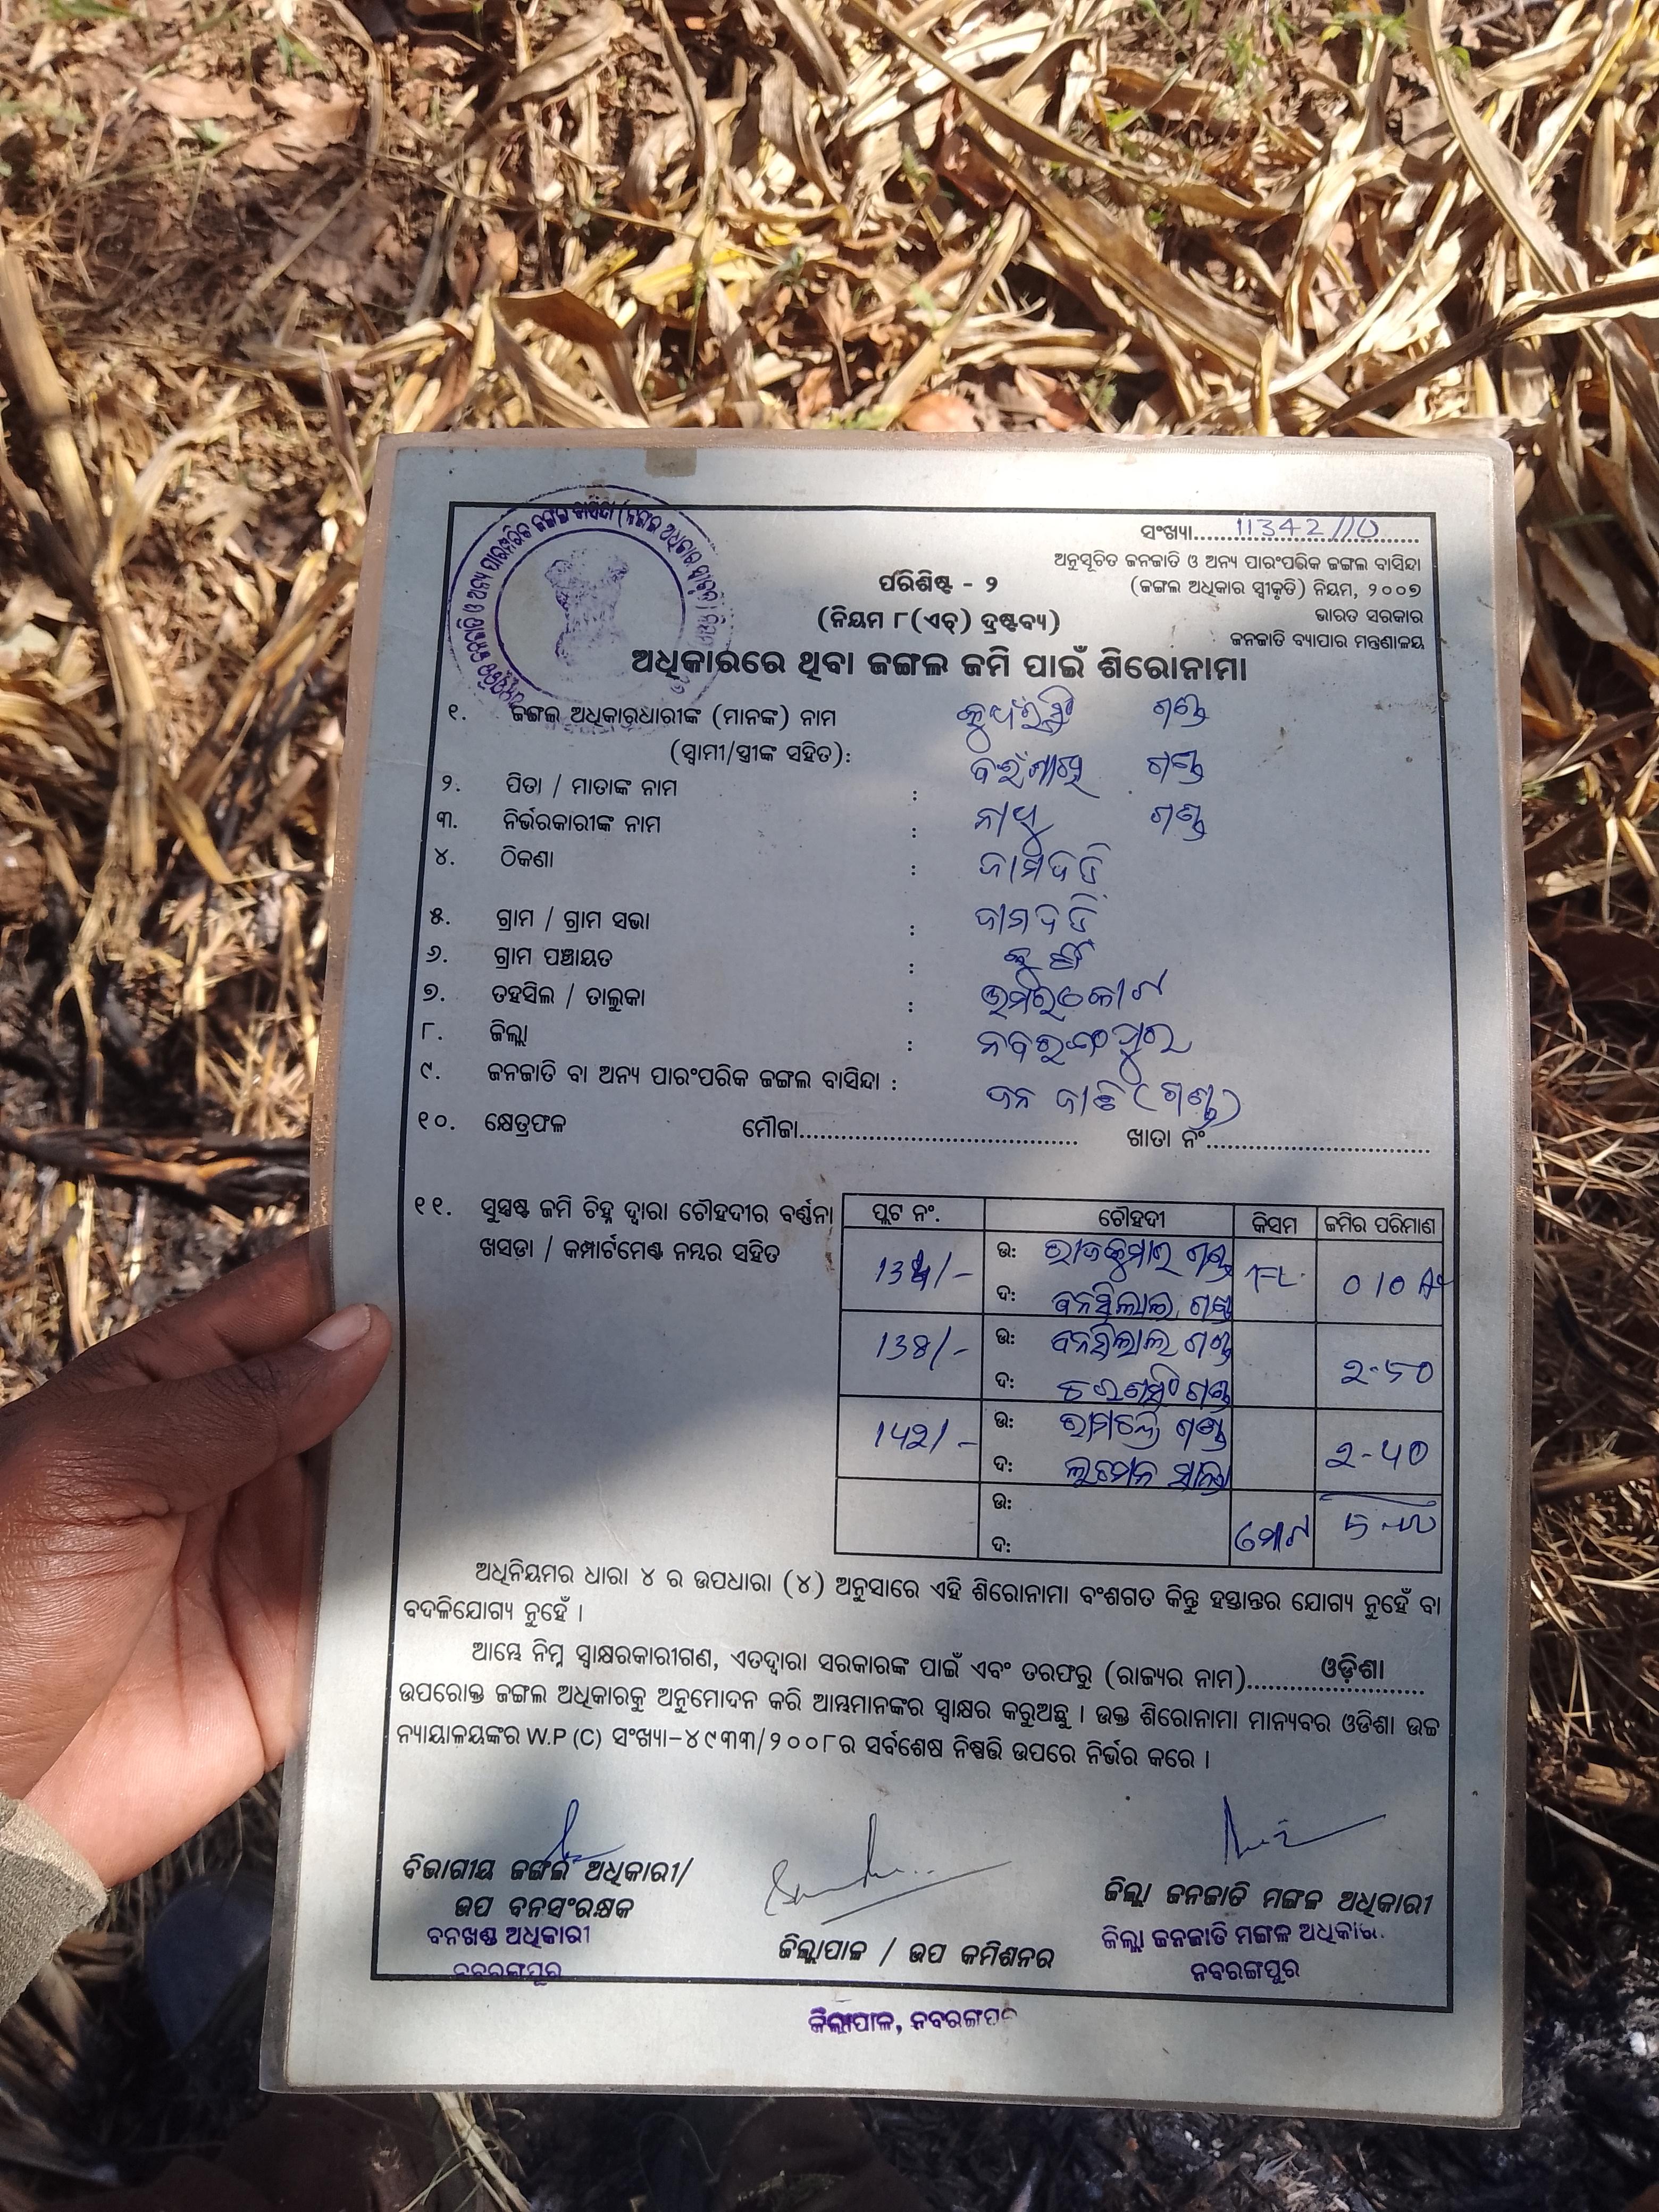 ସଂଖ୍ୟା.............11342/10..............
ଅନୁସୂଚିତ ଜନଜାତି ଓ ଅନ୍ୟ ପାରଂପରିକ ଜଙ୍ଗଲ ବାସିନ୍ଦା
(ଜଙ୍ଗଲ ଅଧିକାର ସ୍ୱୀକୃତି) ନିୟମ, ୨୦୦୭
ଭାରତ ସରକାର
ଜନଜାତି ବ୍ୟାପାର ମନ୍ତ୍ରଣାଳୟ
ପରିଶିଷ୍ଟ - ୨
(ନିୟମ ୮(ଏଚ୍) ଦ୍ରଷ୍ଟବ୍ୟ)
ଅଧିକାରରେ ଥିବା ଜଙ୍ଗଲ ଜମି ପାଇଁ ଶିରୋନାମା
୧. ଜଙ୍ଗଲ ଅଧିକାରଧାରୀଙ୍କ (ମାନଙ୍କ) ନାମ ଗଣ୍ଡ
(ସ୍ୱାମୀ/ସ୍ତ୍ରୀଙ୍କ ସହିତ):
୨. ପିତା / ମାତାଙ୍କ ନାମ : ଗଣ୍ଡ
୩. ନିର୍ଭରକାରୀଙ୍କ ନାମ : ଗଣ୍ଡ
୪. ଠିକଣା : ଜାମଦଡି
୫. ଗ୍ରାମ / ଗ୍ରାମ ସଭା : ଜାମଦଡି
୬. ଗ୍ରାମ ପଞ୍ଚାୟତ :
୭. ତହସିଲ / ତାଲୁକା : ଉମରକୋଟ
୮. ଜିଲ୍ଲା : ନବରଙ୍ଗପୁର
୯. ଜନଜାତି ବା ଅନ୍ୟ ପାରଂପରିକ ଜଙ୍ଗଲ ବାସିନ୍ଦା : ଜନ ଜାତି (ଗଣ୍ଡ)
୧୦. କ୍ଷେତ୍ରଫଳ ମୌଜା........................................ ଖାତା ନଂ................................
୧୧. ସୁସ୍ପଷ୍ଟ ଜମି ଚିହ୍ନ ଦ୍ୱାରା ଚୌହଦୀର ବର୍ଣ୍ଣନା
ଖସଡ଼ା / କମ୍ପାର୍ଟମେଣ୍ଟ ନମ୍ବର ସହିତ
ପ୍ଲଟ ନଂ. ଚୌହଦୀ କିସମ ଜମିର ପରିମାଣ
ଉ: ରାଜକୁମାର ଗଣ୍ଡ
ଦ: ବନସିଲାଲ ଗଣ୍ଡ
138/- ଉ: ବନସିଲାଲ ଗଣ୍ଡ ୨-୫୦
ଦ: ଗଣ୍ଡ
ଉ: ରାମଚନ୍ଦ୍ର ଗଣ୍ଡ
ଦ:
ଉ: ମୋଟ
ଦ:
ଅଧିନିୟମର ଧାରା ୪ ର ଉପଧାରା (୪) ଅନୁସାରେ ଏହି ଶିରୋନାମା ବଂଶଗତ କିନ୍ତୁ ହସ୍ତାନ୍ତର ଯୋଗ୍ୟ ନୁହେଁ ବା
ବଦଳିଯୋଗ୍ୟ ନୁହେଁ ।
ଆମ୍ଭେ ନିମ୍ନ ସ୍ୱାକ୍ଷରକାରୀଗଣ, ଏତଦ୍ୱାରା ସରକାରଙ୍କ ପାଇଁ ଏବଂ ତରଫରୁ (ରାଜ୍ୟର ନାମ)..........ଓଡ଼ିଶା..........
ଉପରୋକ୍ତ ଜଙ୍ଗଲ ଅଧିକାରକୁ ଅନୁମୋଦନ କରି ଆମ୍ଭମାନଙ୍କର ସ୍ୱାକ୍ଷର କରୁଅଛୁ । ଉକ୍ତ ଶିରୋନାମା ମାନ୍ୟବର ଓଡିଶା ଉଚ୍ଚ
ନ୍ୟାୟାଳୟଙ୍କର W.P (C) ସଂଖ୍ୟା-୪୯୩୩/୨୦୦୮ର ସର୍ବଶେଷ ନିଷ୍ପତ୍ତି ଉପରେ ନିର୍ଭର କରେ ।
ବିଭାଗୀୟ ଜଙ୍ଗଲ ଅଧିକାରୀ/
ଉପ ବନସଂରକ୍ଷକ
ବନଖଣ୍ଡ ଅଧିକାରୀ
ନବରଙ୍ଗପୁର
ଜିଲ୍ଲାପାଳ / ଉପ କମିଶନର
ଜିଲ୍ଲାପାଳ, ନବରଙ୍ଗପୁର
ଜିଲ୍ଲା ଜନଜାତି ମଙ୍ଗଳ ଅଧିକାରୀ
ଜିଲ୍ଲା ଜନଜାତି ମଙ୍ଗଳ ଅଧିକାରୀ
ନବରଙ୍ଗପୁର